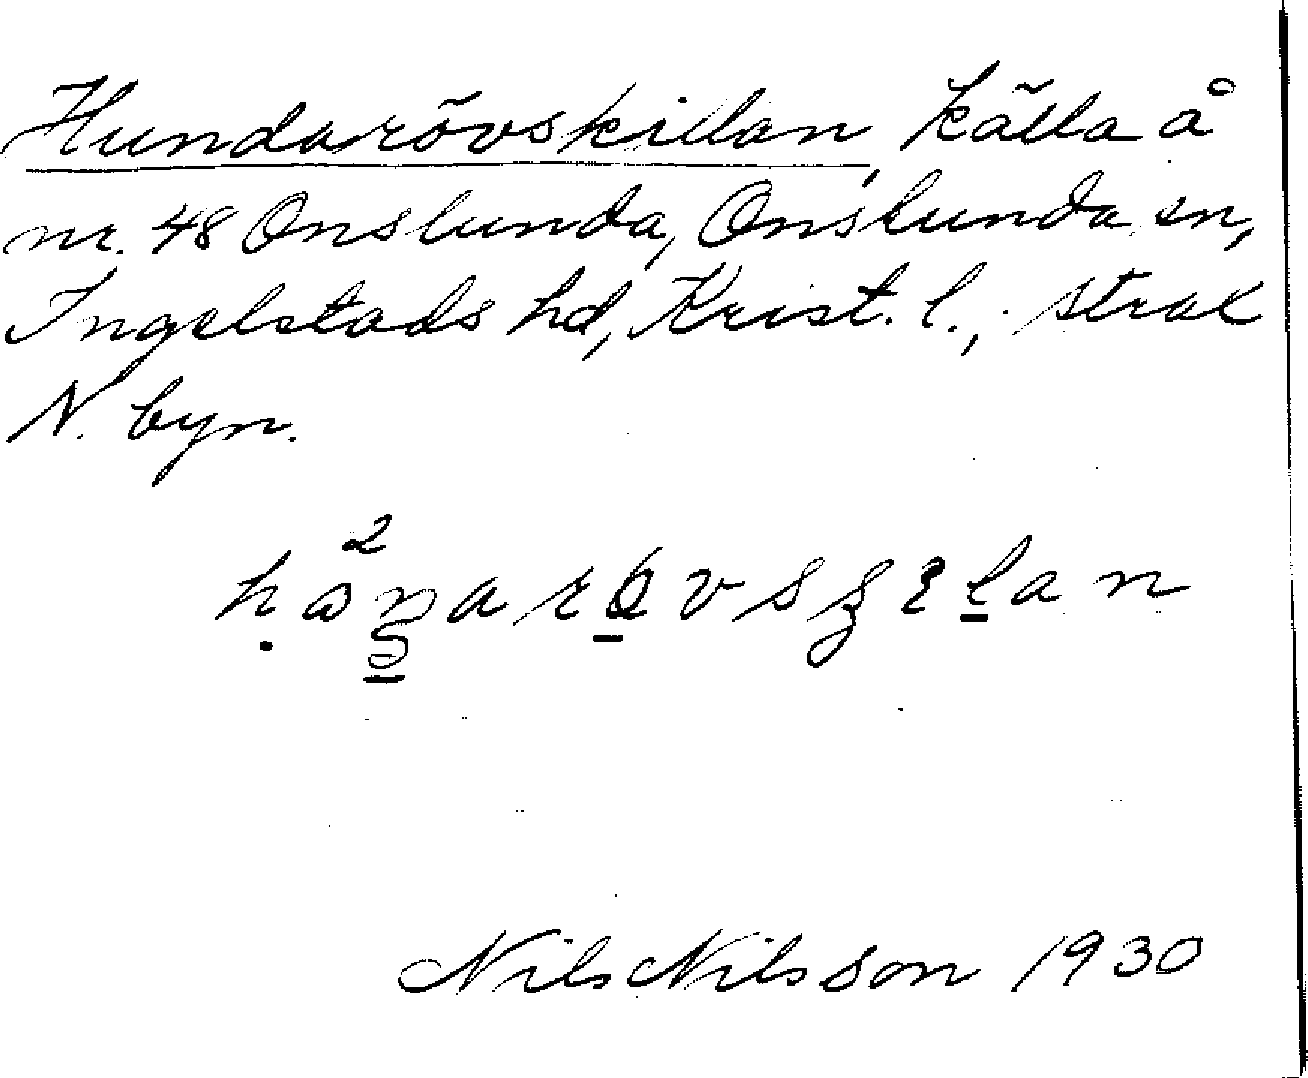 Hundarövskillan, källa å
nr. 48 Onslunda, Onslunda sn,
Ingelstads hd, Krist. l., strax
N. byn.
Nils Nilsson 1930